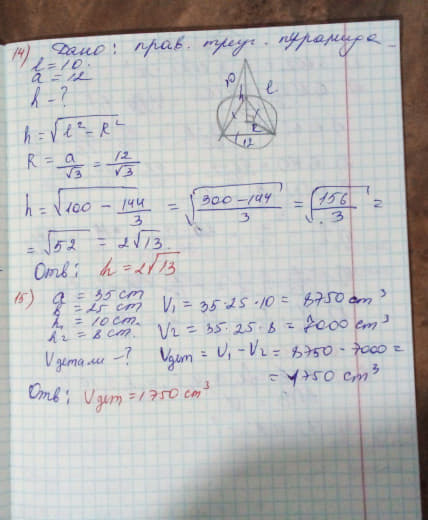 14) Дано: прав. треуг. пирамида
l = 10.
a = 12
h - ?
h = √(l² - R²)
R = a/√3 = 12/√3
h = √(100 - 144/3) = √((300 - 144)/3) = √(156/3) =
= √52 = 2√13.
Отв: h = 2√13
h
l
R
12
15) a = 35 cm
b = 25 cm
h₁ = 10 cm.
h₂ = 8 cm.
Vдетали - ?
V₁ = 35·25·10 = 8750 cm³
V₂ = 35·25·8 = 7000 cm³
Vдет = V₁ - V₂ = 8750 - 7000 =
= 1750 cm³
Отв: Vдет = 1750 cm³